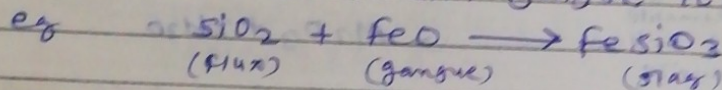 eg SiO2 + FeO ⟶ FeSiO3
(flux) (gangue) (slag)